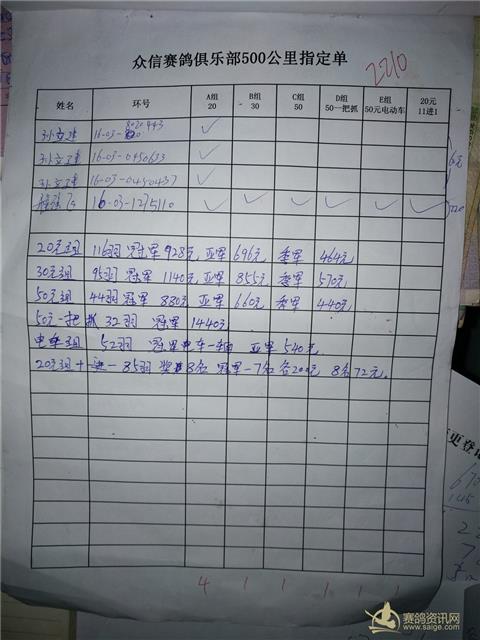 众信赛鸽俱乐部500公里指定单
2210
姓名 环号 A组 20 B组 30 C组 50 D组 50一把抓 E组 50元电动车 20元 11进1
16-03- ✓
16-03-0450633 ✓
16-03-0450437 ✓
16-03-1215110 ✓ ✓ ✓ ✓ ✓ ✓
20元组 116羽 冠军928元 亚军696元 季军464元
30元组 95羽 冠军1140元 亚军855元 季军570元
50元组 44羽 冠军880元 亚军660元 季军440元
50元一把抓 32羽 冠军1440元
电车组 52羽 冠军电车一辆 亚军540元
20元组十一进一 85羽 奖8名 冠军-7名各200元 8名72元
4 1 1 1 1 1
更登记
赛鸽资讯网
www.saige.com